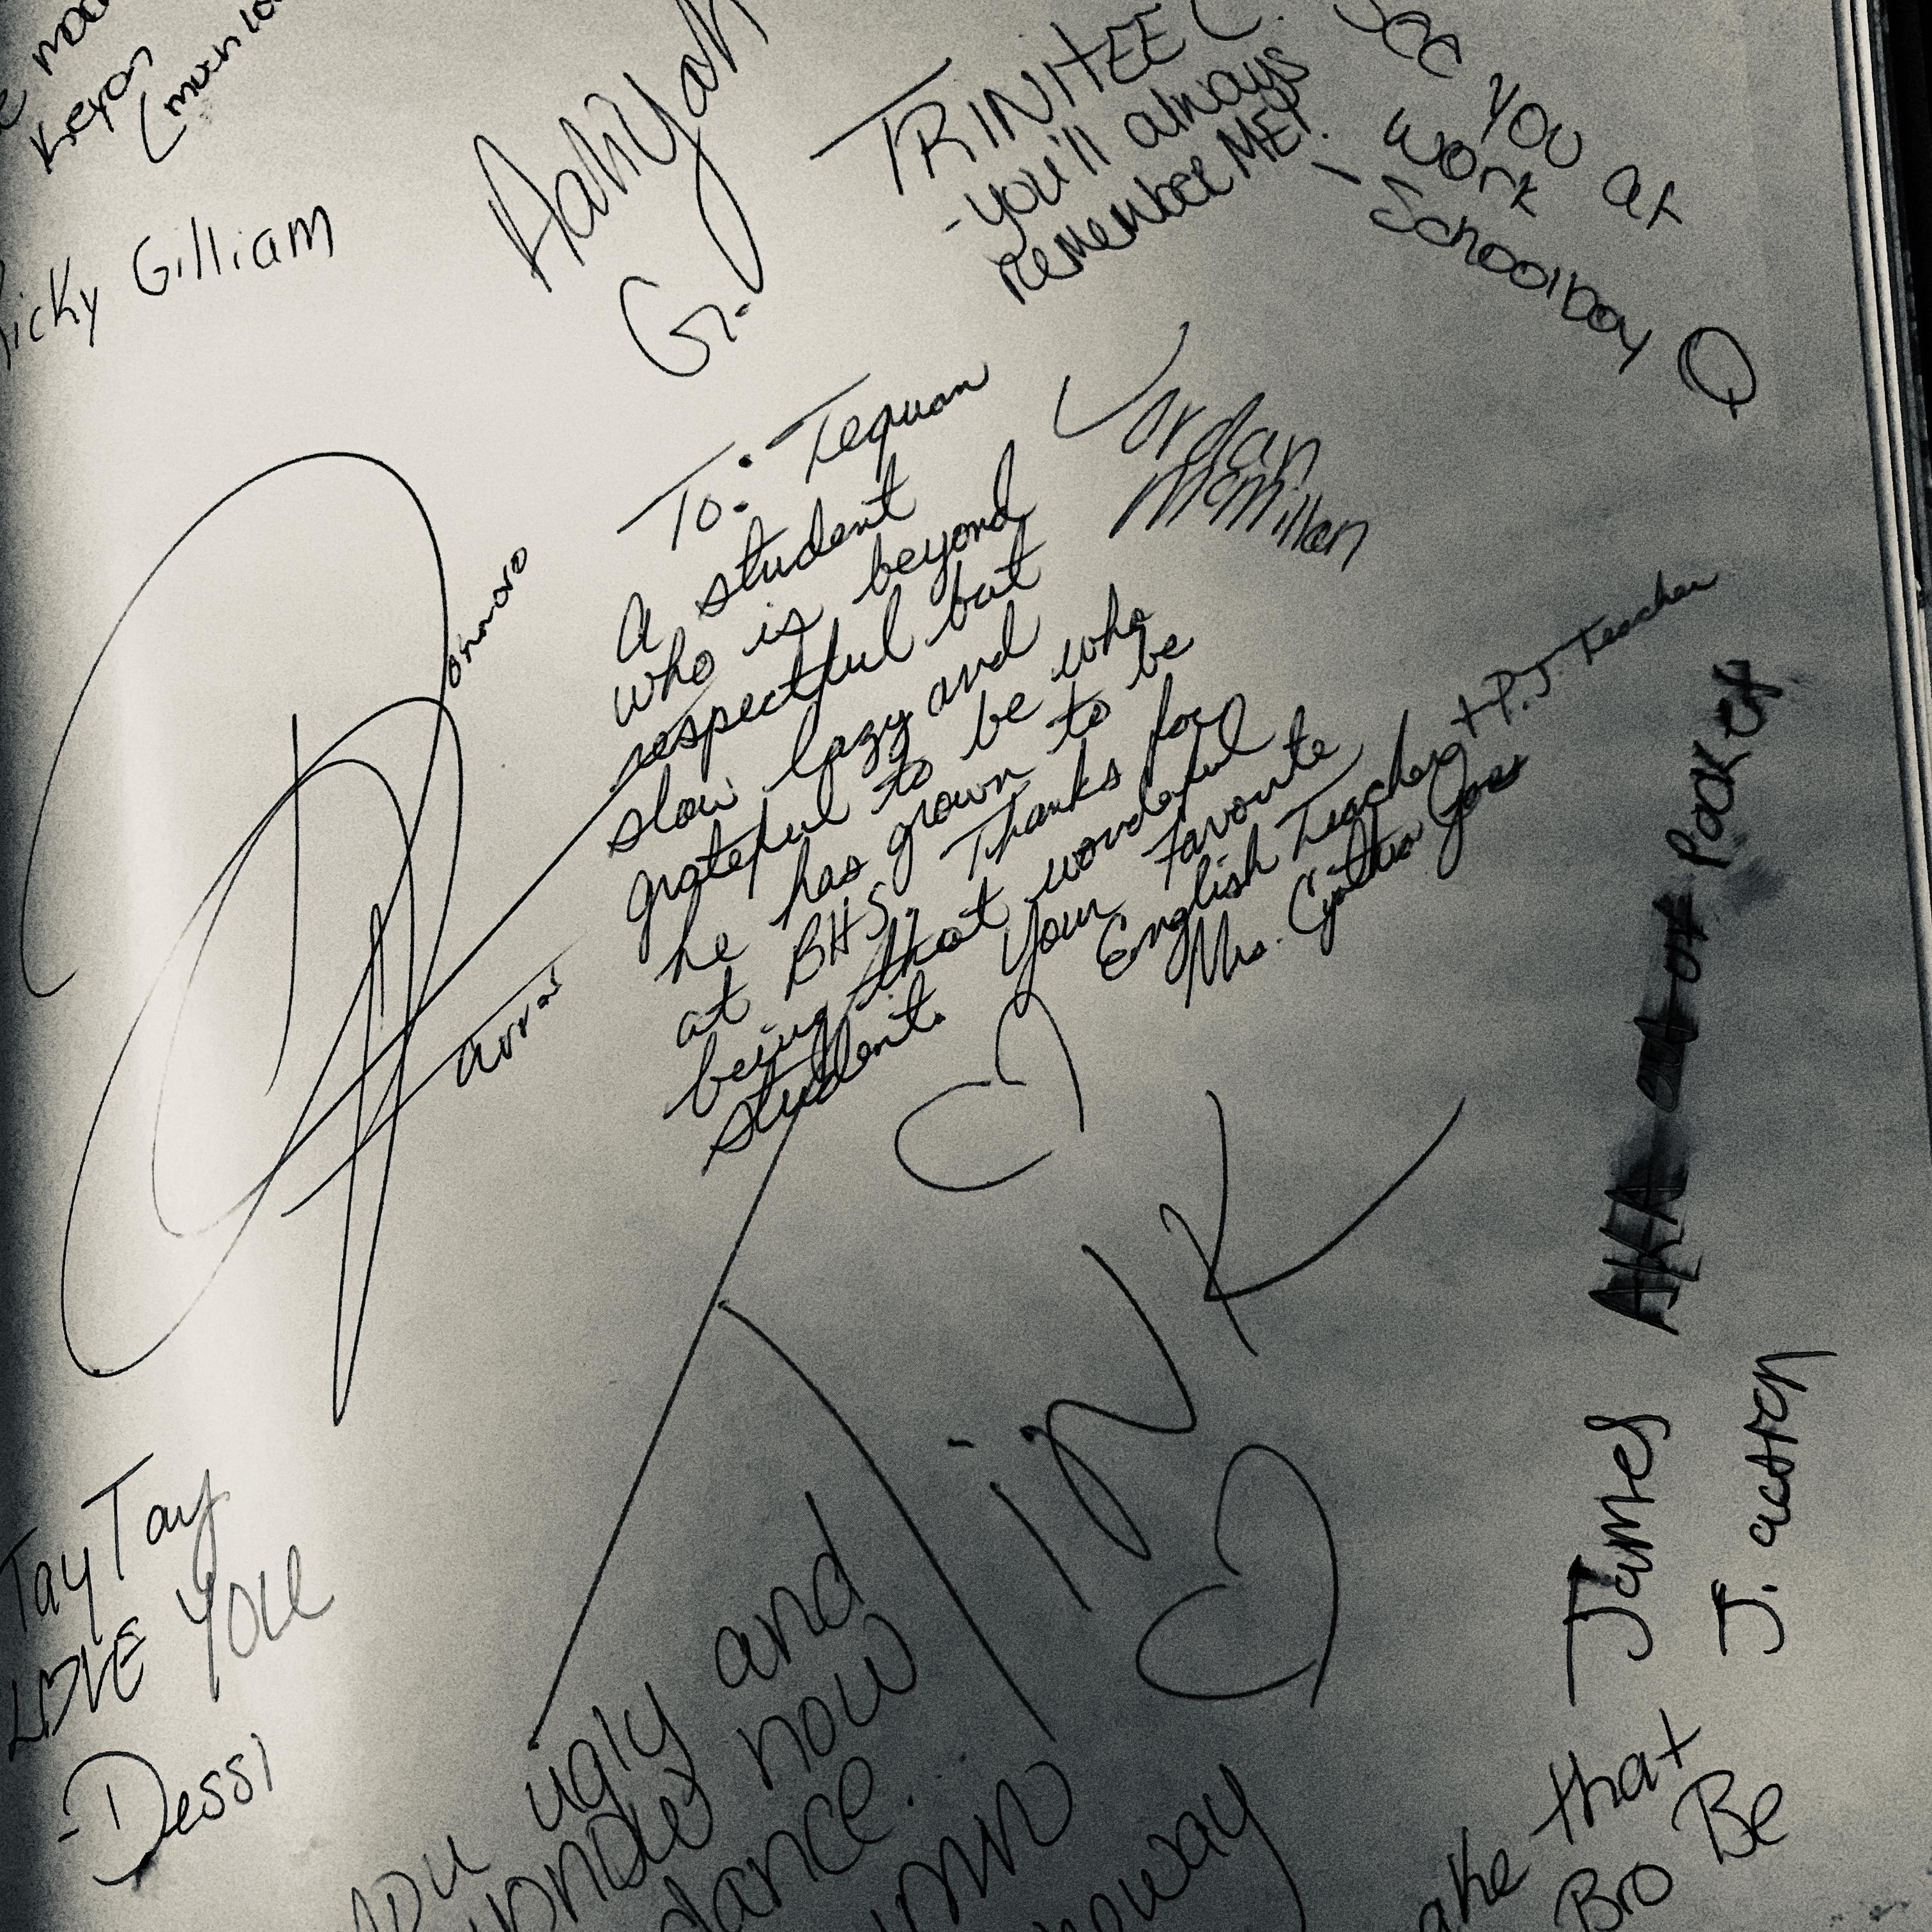 Keyon
Gilliam
Aaliyah
G.
TRINITEE C.
- you'll always
remember ME!.
See you at
work
- Schoolboy Q
Jordan
McMillan
To: Tequan
A student
who is beyond
respectful but
slow lazy and
grateful to be who
he has grown to be
at BHS. Thanks for
being that wonderful
student. Your Favorite
English Teacher + P.J. Teacher
Mrs. Cynthia
TINK
James AKA out of Pocket
J.
Tay Tay
LOVE you
- Dessi
you ugly and
now
dance.
that
Bro Be